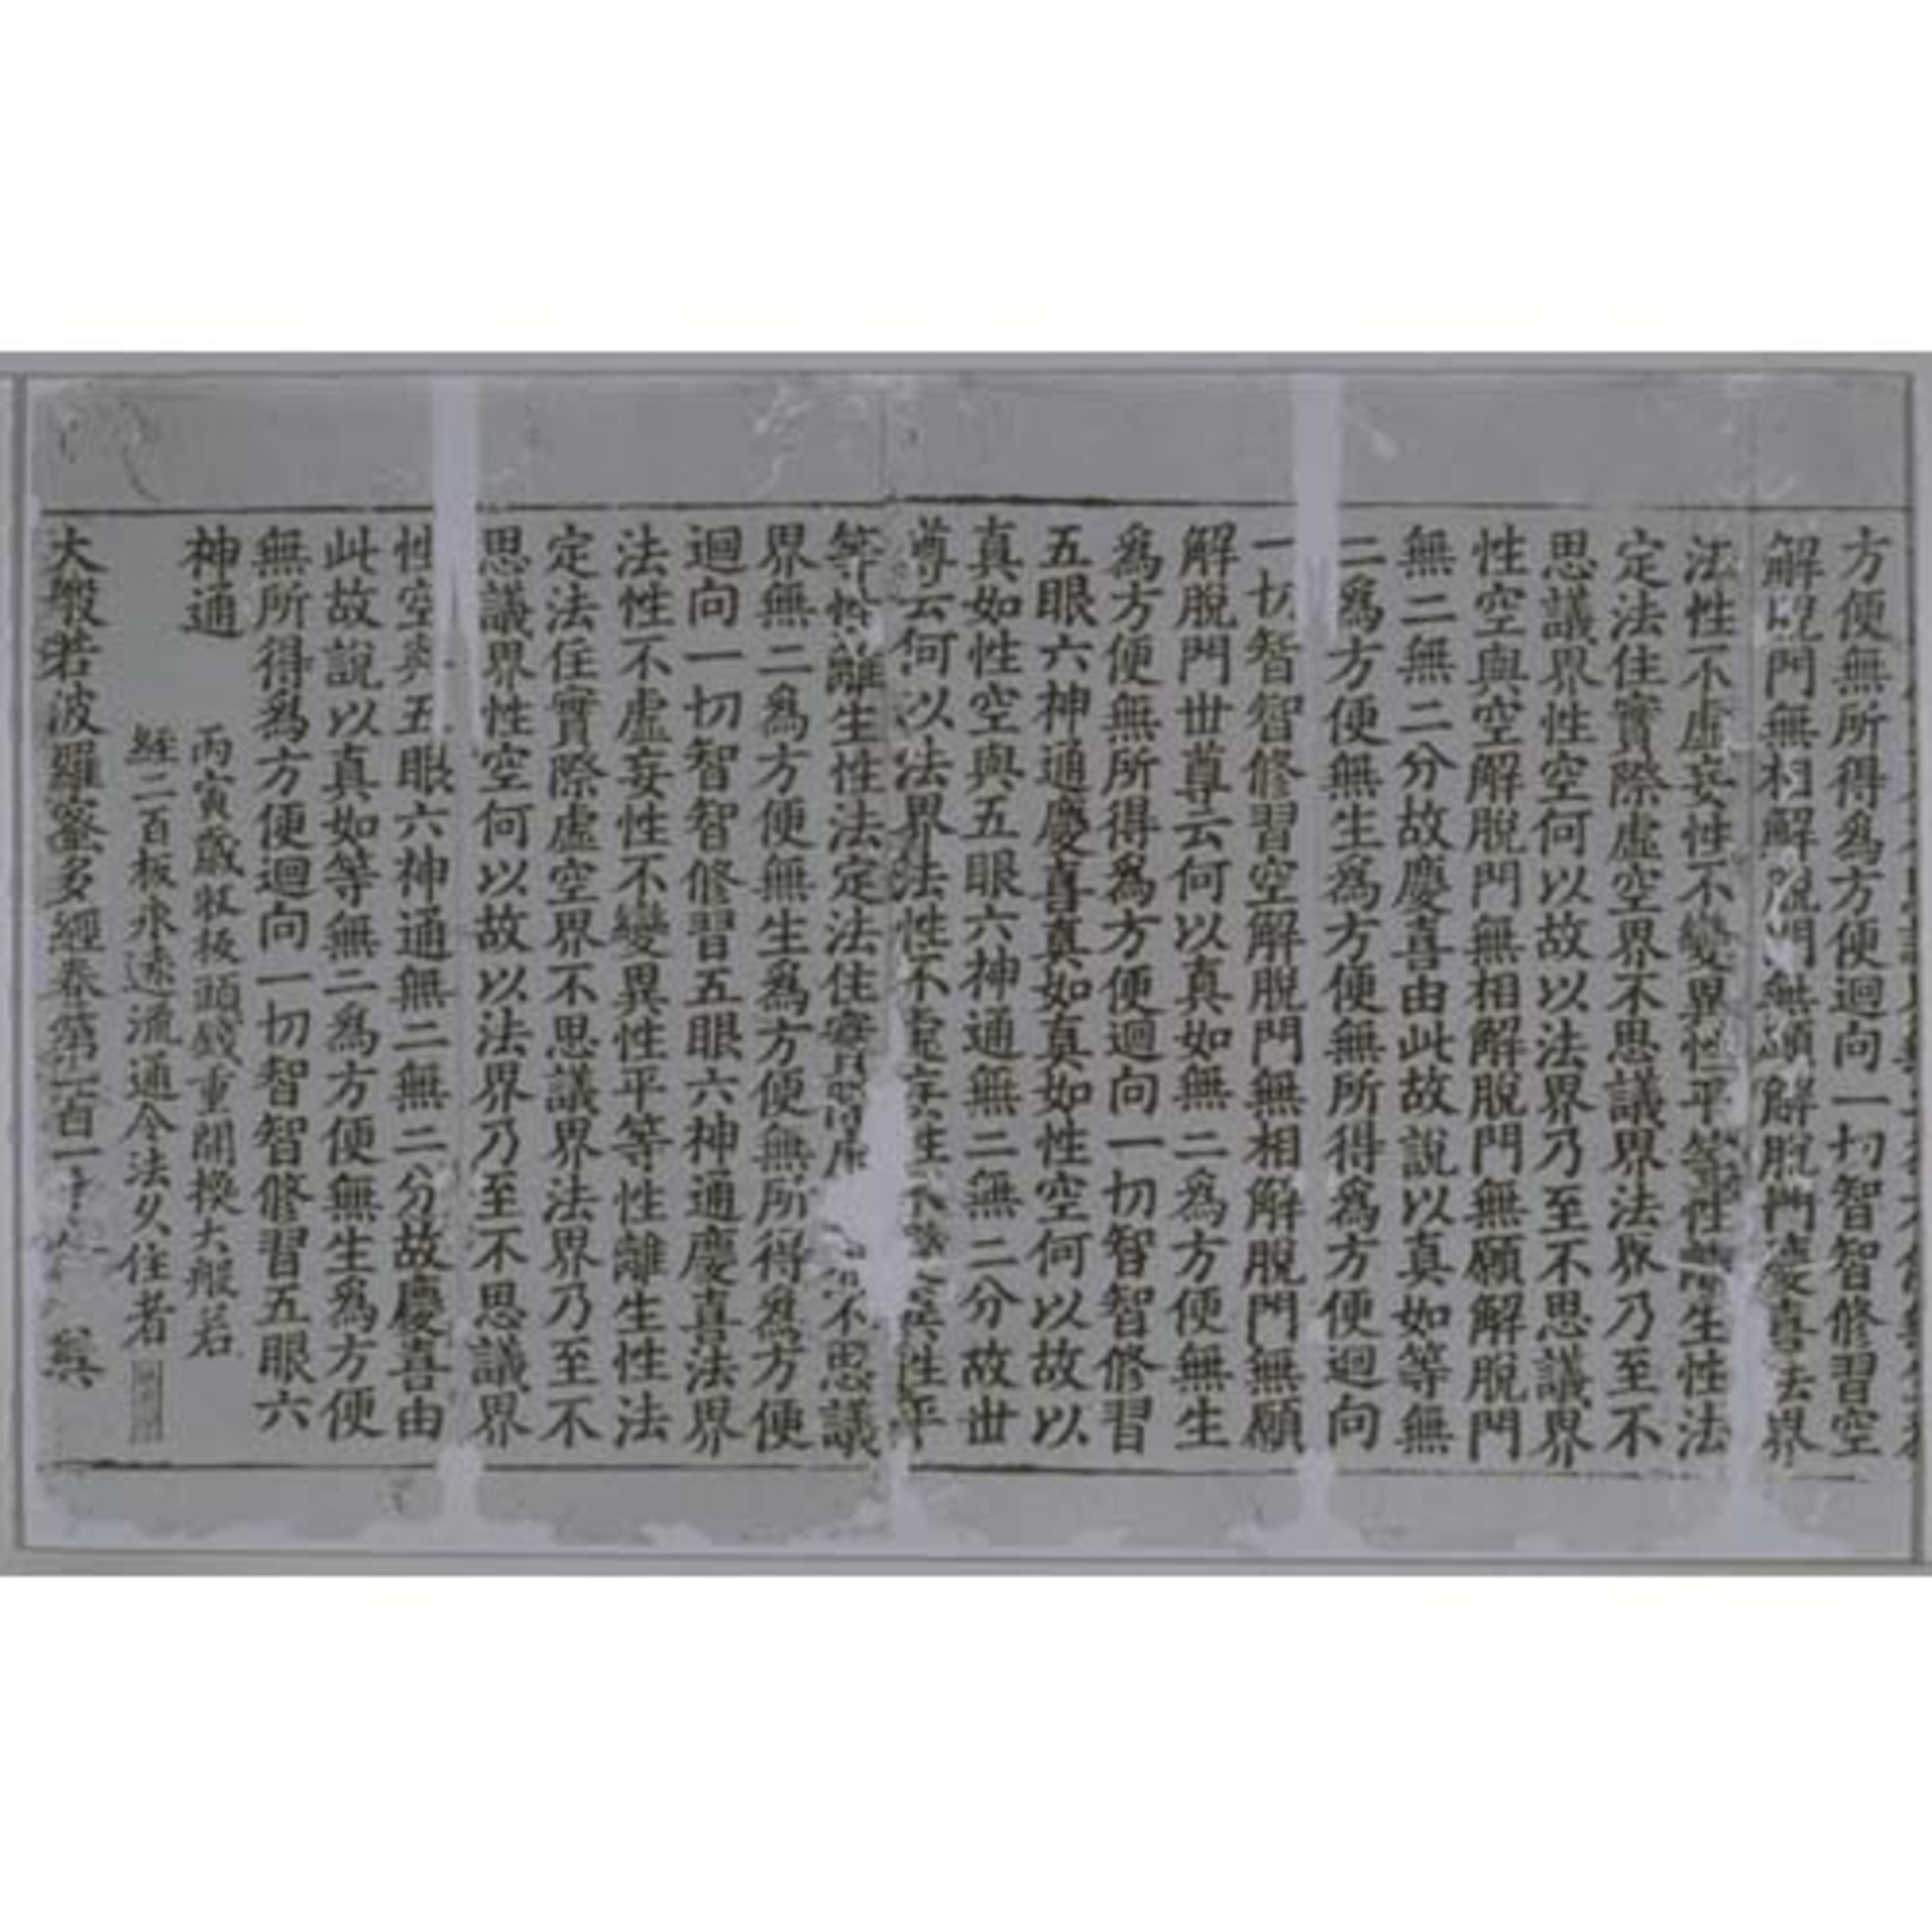 方便無所得爲方便迴向一切智智修習空
解脫門無相解脫門無願解脫門慶喜法界
法性不虛妄性不變異性平等性離生性法
定法住實際虛空界不思議界法界乃至不
思議界性空何以故以法界乃至不思議界
性空與空解脫門無相解脫門無願解脫門
無二無二分故慶喜由此故說以真如等無
二爲方便無生爲方便無所得爲方便迴向
一切智智修習空解脫門無相解脫門無願
解脫門世尊云何以真如無二爲方便無生
爲方便無所得爲方便迴向一切智智修習
五眼六神通慶喜真如真如性空何以故以
真如性空與五眼六神通無二無二分故世
尊云何以法界法性不虛妄性不變異性平
等性離生性法定法住實際虛空界不思議
界無二爲方便無生爲方便無所得爲方便
迴向一切智智修習五眼六神通慶喜法界
法性不虛妄性不變異性平等性離生性法
定法住實際虛空界不思議界法界乃至不
思議界性空何以故以法界乃至不思議界
性空與五眼六神通無二無二分故慶喜由
此故說以真如等無二爲方便無生爲方便
無所得爲方便迴向一切智智修習五眼六
神通
丙寅歲收板頭錢重開換大般若
經二百板永遠流通令法久住者
大般若波羅蜜多經卷第一百一十